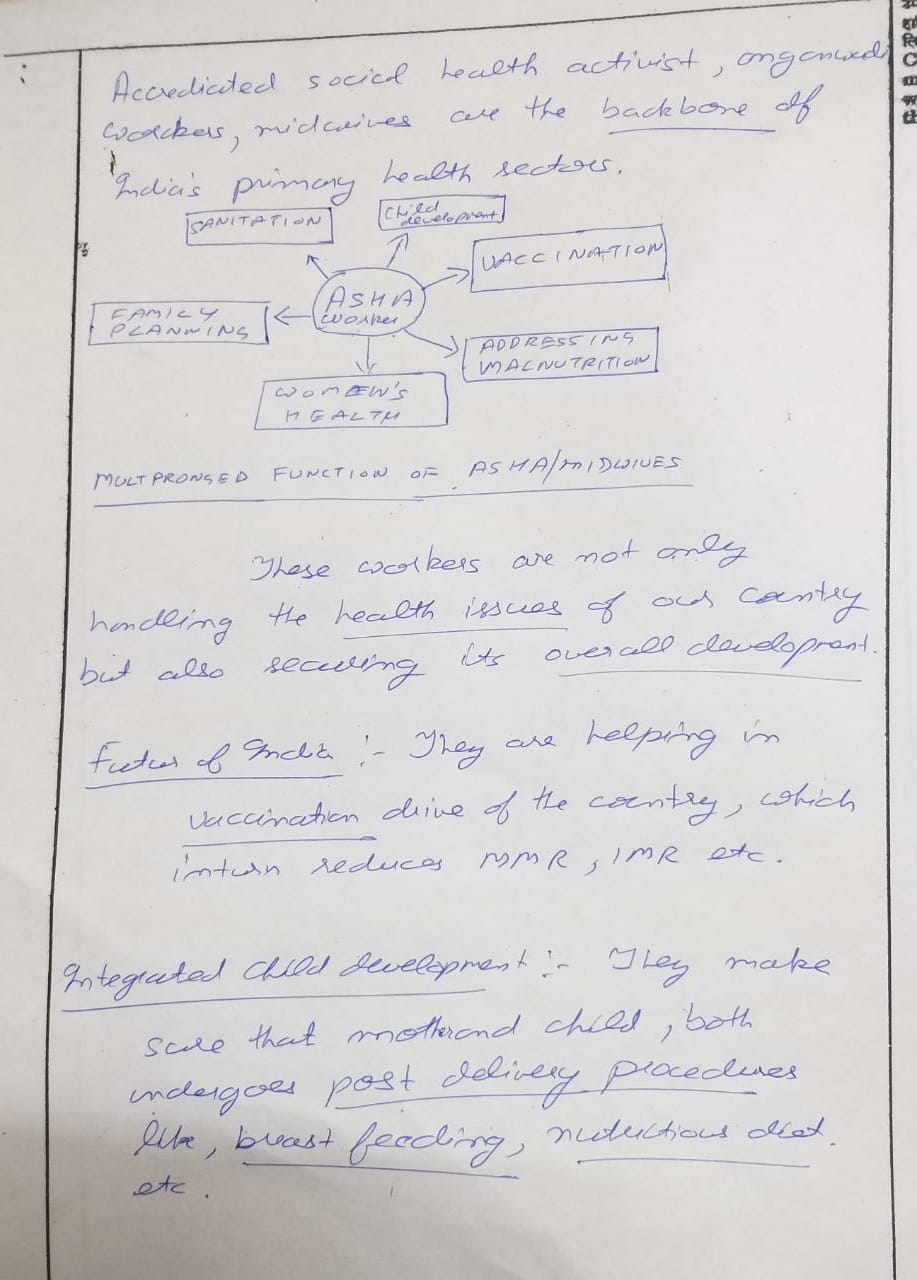 Accrediated social health activist, anganwadi
workers, midwives are the backbone of
India's primary health sectors.
SANITATION
Child
development
VACCINATION
ASHA
worker
FAMILY
PLANNING
ADDRESSING
MALNUTRITION
WOMEN'S
HEALTH
MULTPRONGED FUNCTION OF ASHA/MIDWIVES
These workers are not only
handling the health issues of our country
but also securing its overall development.
Futur of India :- They are helping in
vaccination drive of the country, which
inturn reduces MMR, IMR etc.
Integrated Child development :- They make
sure that mother and child, both
undergoes post delivery procedures
like, breast feeding, nutritious diet.
etc.